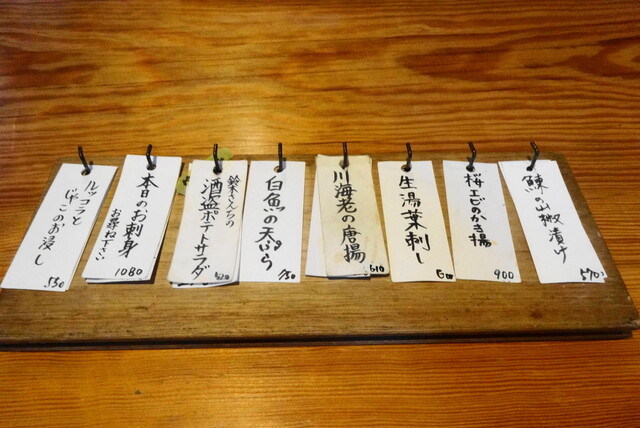 鰊の山椒漬け
570
桜エビのかき揚
900
生湯葉刺し
600
川海老の唐揚
610
白魚の天ぷら
750
鈴木さんちの
酒盗ポテトサラダ
620
本日のお刺身
お尋ね下さい
1080
ルッコラと
じゃこのお浸し
530